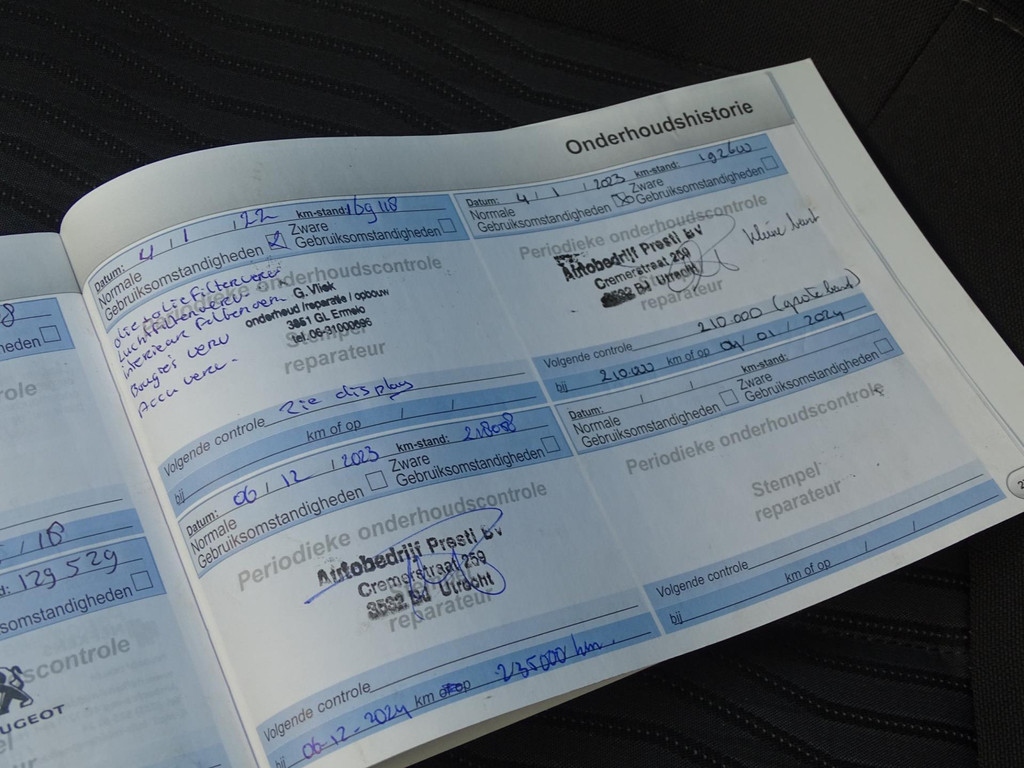 Onderhoudshistorie
8
heden
role
/ 18
d: 129529
omstandigheden
scontrole
UGEOT
el
Datum: 4 / 1 / 22 km-stand: 169118
Normale Zware
Gebruiksomstandigheden Gebruiksomstandigheden
Periodieke onderhoudscontrole
olie + oliefilter verv
Luchtfilter verv.
interieur filter verv
Bougies verv
Accu verv.
G. Vliek
onderhoud/reparatie/opbouw
3851 GL Ermelo
tel. 06-31000695
Stempel
reparateur
Volgende controle Zie display
bij km of op / /
Datum: 4 / 1 / 2023 km-stand:
Normale Zware
Gebruiksomstandigheden Gebruiksomstandigheden
Periodieke onderhoudscontrole
Autobedrijf Presti bv
Cremerstraat 259
Bd Utrecht
kleine beurt
reparateur
Volgende controle 210.000 (grote beurt)
bij 210.000 km of op 04 / 01 / 2024
Datum: 06 / 12 / 2023 km-stand: 218098
Normale Zware
Gebruiksomstandigheden Gebruiksomstandigheden
Periodieke onderhoudscontrole
Autobedrijf Presti bv
Cremerstraat 259
3532 Bd Utrecht
reparateur
Volgende controle
bij 06-12-2024 km of op 235000 km.
Datum: / / km-stand:
Normale Zware
Gebruiksomstandigheden Gebruiksomstandigheden
Periodieke onderhoudscontrole
Stempel
reparateur
Volgende controle
bij km of op / /
2